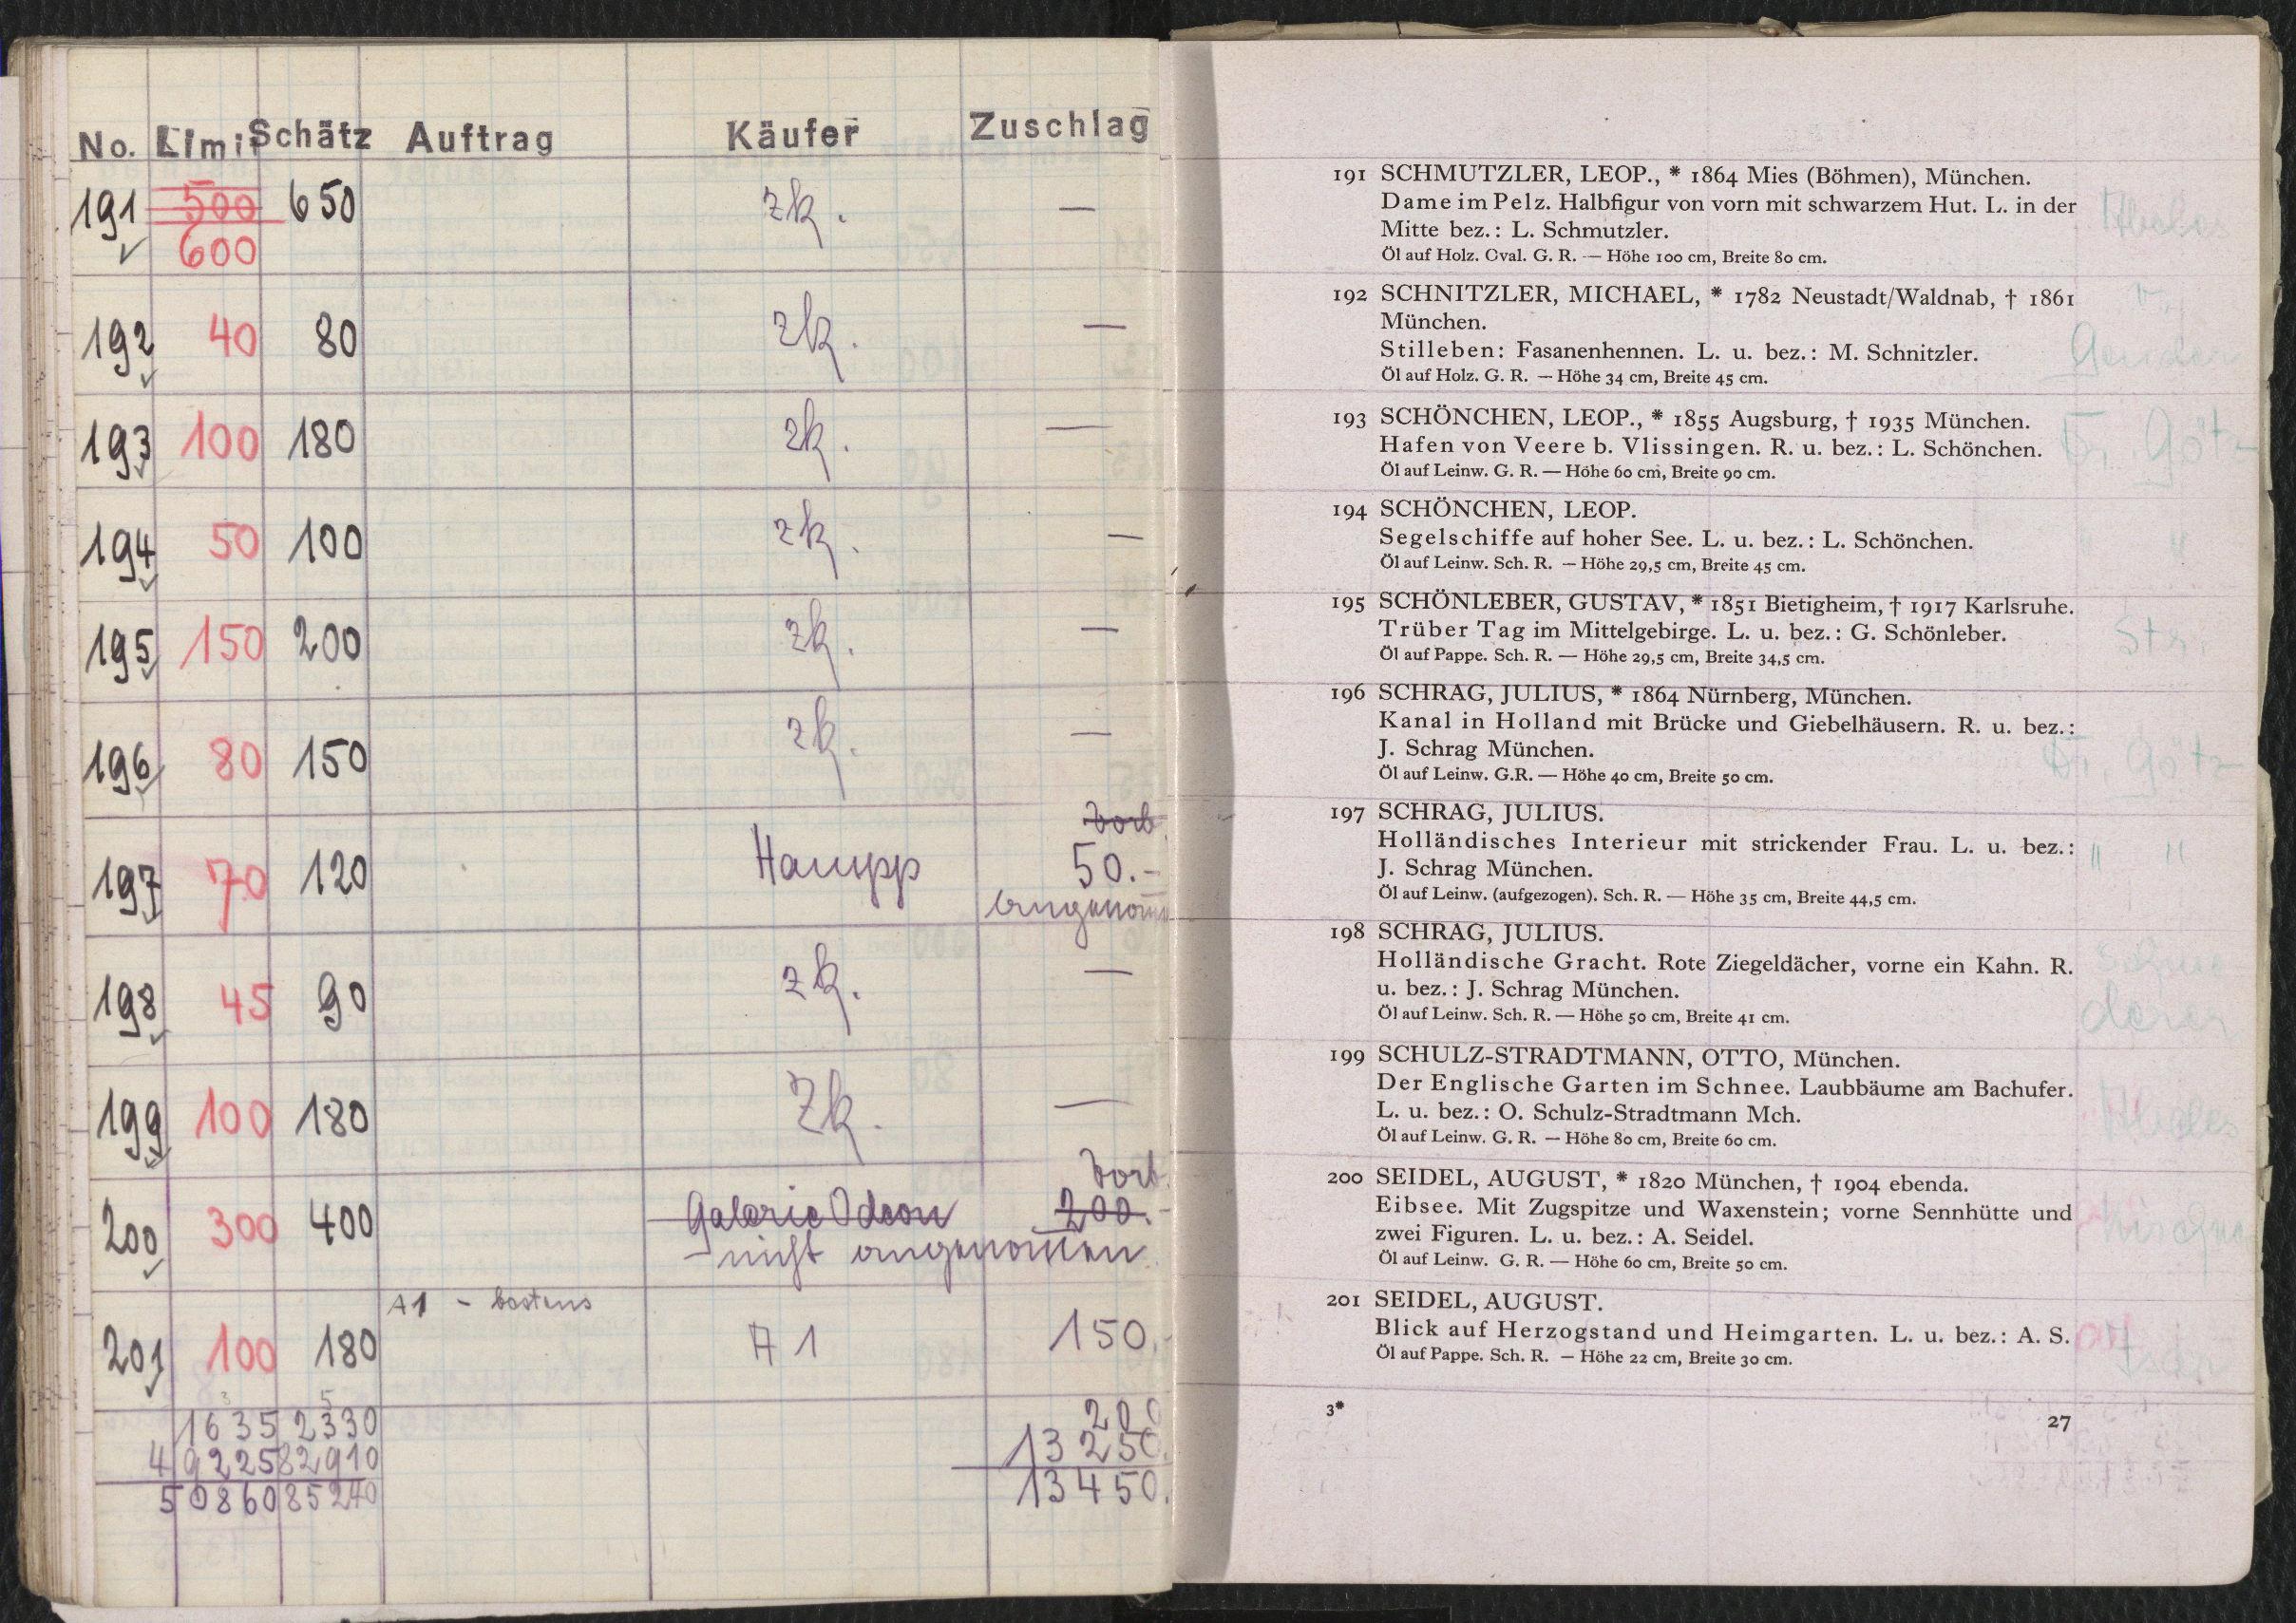 No. Limit Schätz Auftrag Käufer Zuschlag
191 500 650 zk. —
600
192 40 80 zk. —
193 100 180 zk. —
194 50 100 zk. —
195 150 200 zk. —
196 80 150 zk. —
Vorb.
197 70 120 Haupp 50.-
angenom
198 45 90 zk. —
199 100 180 zk. —
Vorb.
200 300 400 Galerie Odeon 200.-
nicht angenommen.
A1 - bestens
201 100 180 A 1 150.-
1635 2330 200
49225 82910 13250.
50860 85240 13450.
191 SCHMUTZLER, LEOP., * 1864 Mies (Böhmen), München.
Dame im Pelz. Halbfigur von vorn mit schwarzem Hut. L. in der
Mitte bez.: L. Schmutzler.
Öl auf Holz. Oval. G. R. — Höhe 100 cm, Breite 80 cm.
192 SCHNITZLER, MICHAEL, * 1782 Neustadt/Waldnab, † 1861
München.
Stilleben: Fasanenhennen. L. u. bez.: M. Schnitzler.
Öl auf Holz. G. R. — Höhe 34 cm, Breite 45 cm.
193 SCHÖNCHEN, LEOP., * 1855 Augsburg, † 1935 München.
Hafen von Veere b. Vlissingen. R. u. bez.: L. Schönchen.
Dr. Götz
Öl auf Leinw. G. R. — Höhe 60 cm, Breite 90 cm.
194 SCHÖNCHEN, LEOP.
Segelschiffe auf hoher See. L. u. bez.: L. Schönchen. " "
Öl auf Leinw. Sch. R. — Höhe 29,5 cm, Breite 45 cm.
195 SCHÖNLEBER, GUSTAV, * 1851 Bietigheim, † 1917 Karlsruhe.
Trüber Tag im Mittelgebirge. L. u. bez.: G. Schönleber. Str.
Öl auf Pappe. Sch. R. — Höhe 29,5 cm, Breite 34,5 cm.
196 SCHRAG, JULIUS, * 1864 Nürnberg, München.
Kanal in Holland mit Brücke und Giebelhäusern. R. u. bez.:
J. Schrag München. Dr. Götz
Öl auf Leinw. G.R. — Höhe 40 cm, Breite 50 cm.
197 SCHRAG, JULIUS.
Holländisches Interieur mit strickender Frau. L. u. bez.: " "
J. Schrag München.
Öl auf Leinw. (aufgezogen). Sch. R. — Höhe 35 cm, Breite 44,5 cm.
198 SCHRAG, JULIUS.
Holländische Gracht. Rote Ziegeldächer, vorne ein Kahn. R.
u. bez.: J. Schrag München.
Öl auf Leinw. Sch. R. — Höhe 50 cm, Breite 41 cm.
199 SCHULZ-STRADTMANN, OTTO, München.
Der Englische Garten im Schnee. Laubbäume am Bachufer.
L. u. bez.: O. Schulz-Stradtmann Mch.
Öl auf Leinw. G. R. — Höhe 80 cm, Breite 60 cm.
200 SEIDEL, AUGUST, * 1820 München, † 1904 ebenda.
Eibsee. Mit Zugspitze und Waxenstein; vorne Sennhütte und
zwei Figuren. L. u. bez.: A. Seidel.
Öl auf Leinw. G. R. — Höhe 60 cm, Breite 50 cm.
201 SEIDEL, AUGUST.
Blick auf Herzogstand und Heimgarten. L. u. bez.: A. S.
Öl auf Pappe. Sch. R. — Höhe 22 cm, Breite 30 cm.
3*
27